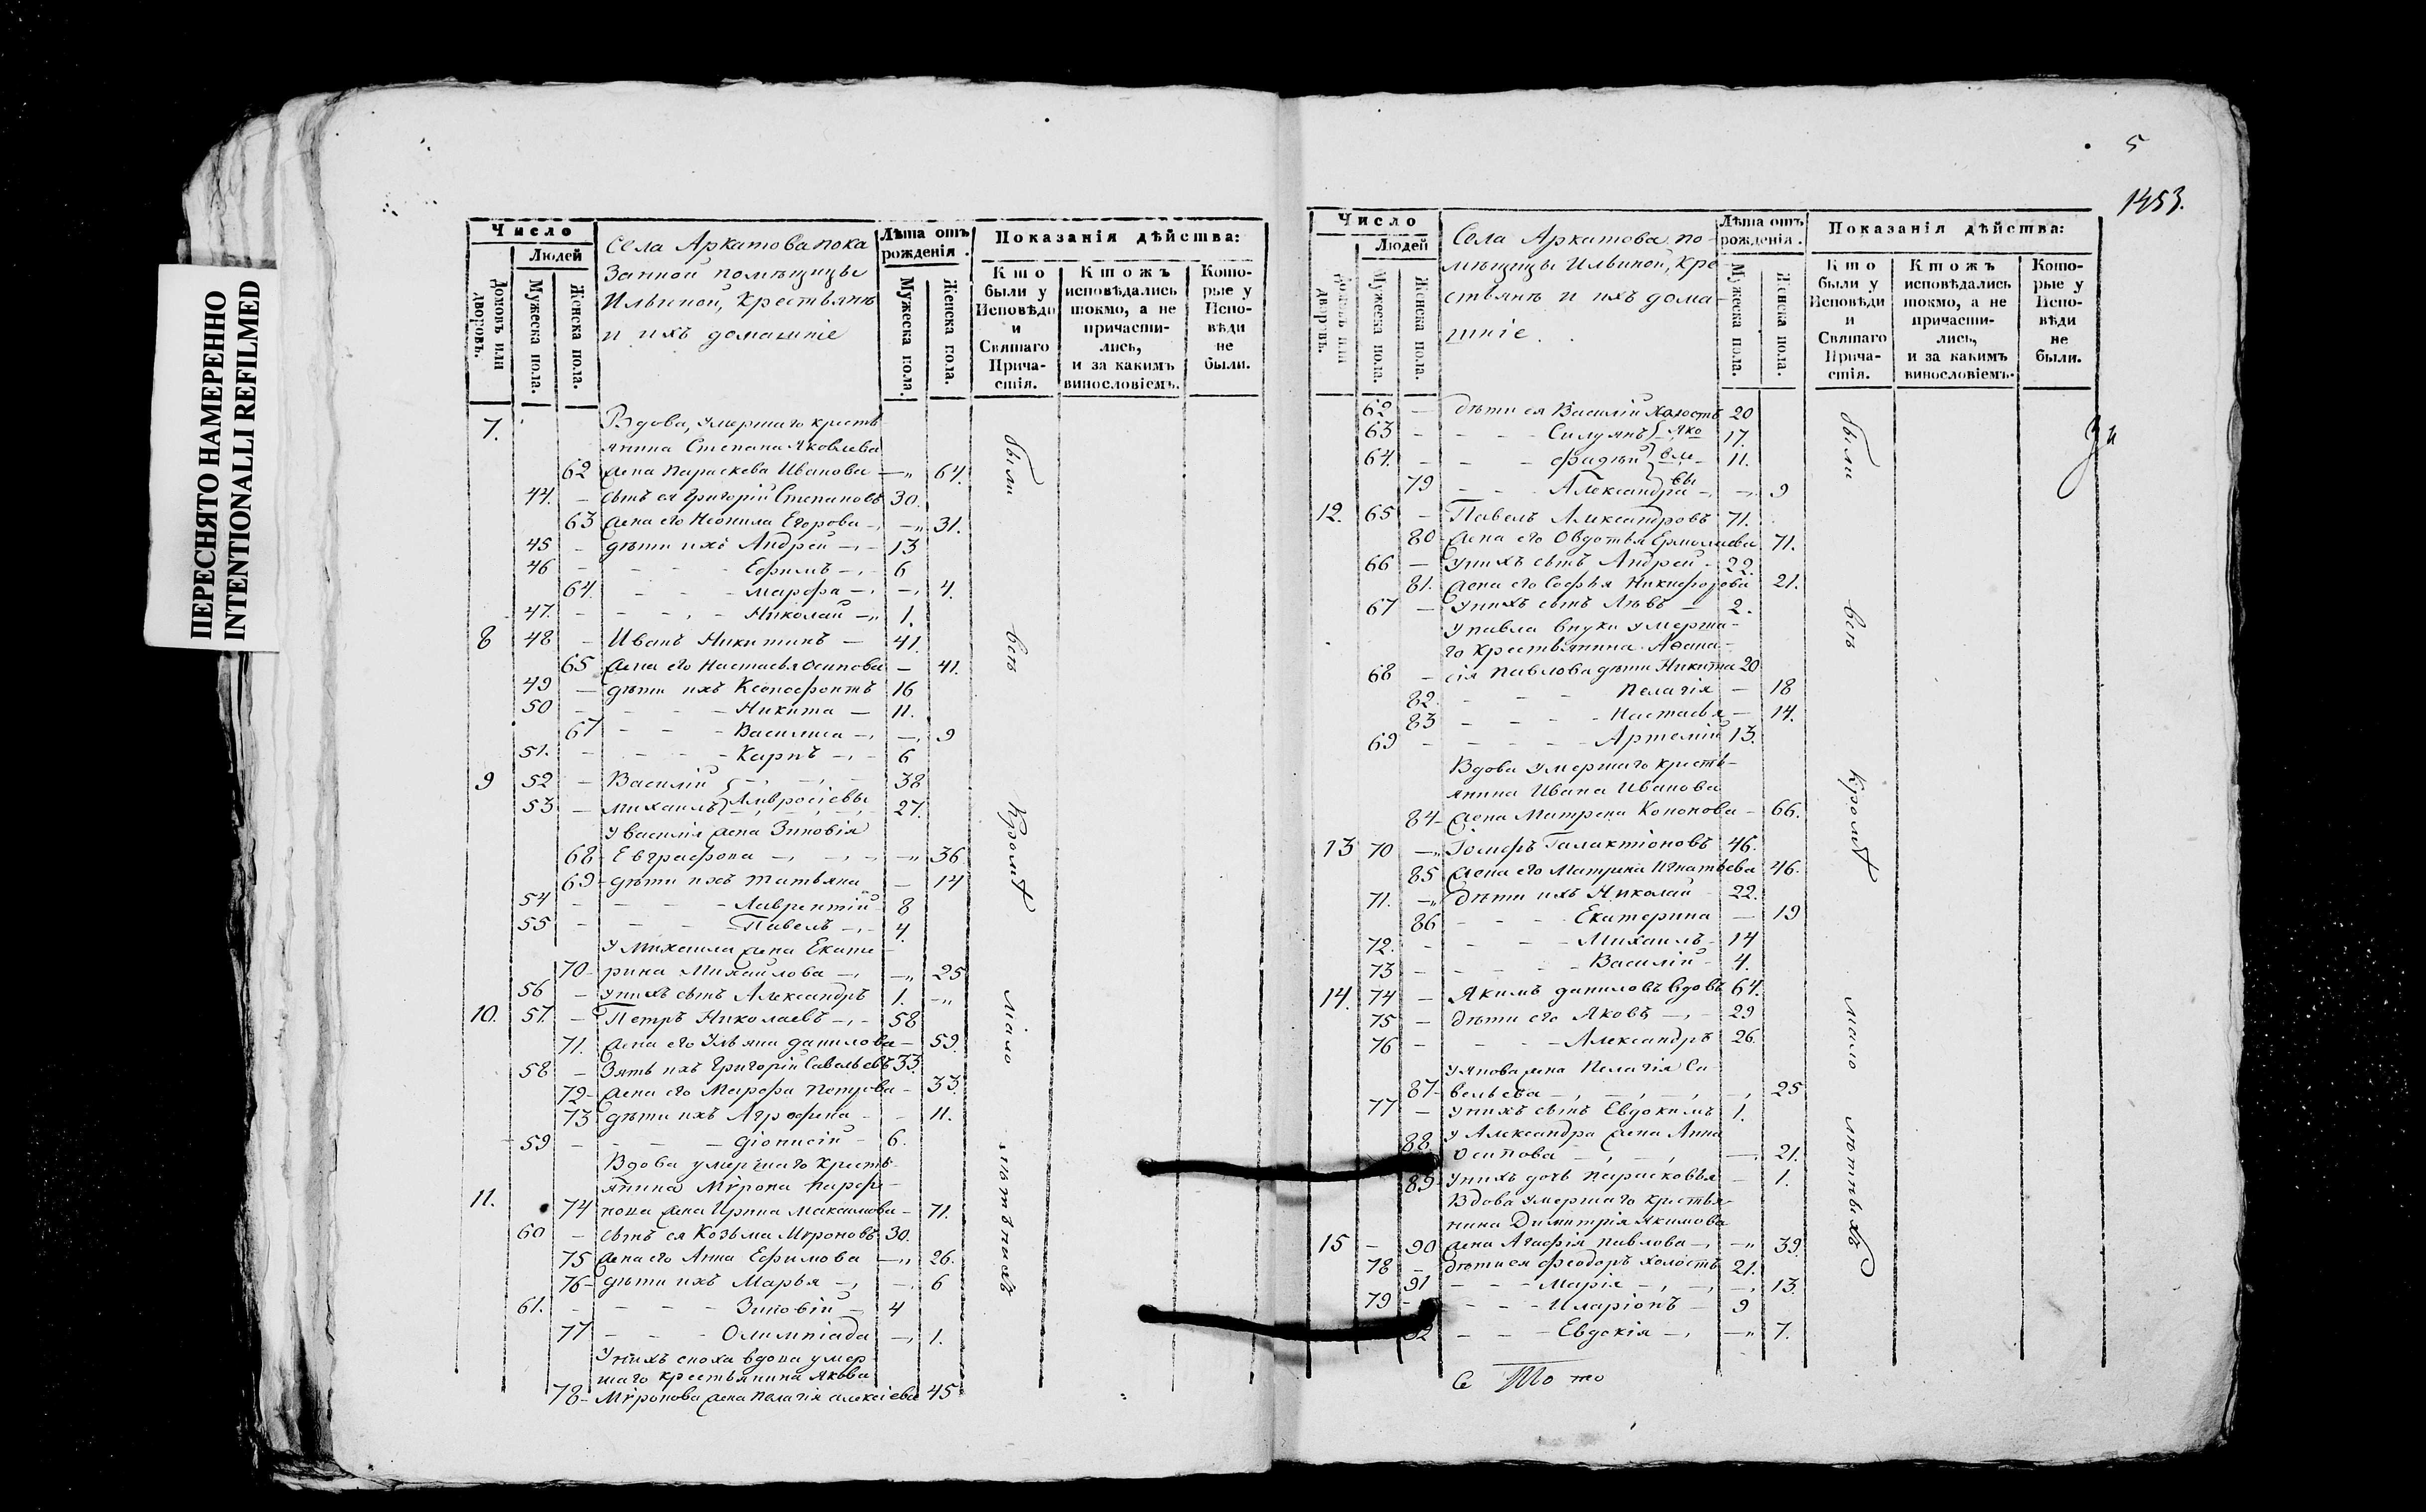 ПЕРЕСНЯТО НАМЕРЕННО
INTENTIONALLI REFILMED
5
1453.
Число
Людей
Домовъ или дворовъ.
Мужеска пола.
Женска пола.
Села Аркатова пока
занной помѣщицы
Ильиной, крестьянѣ
и ихъ домашніе
Лѣта отъ рожденія.
Мужеска пола.
Женска пола.
Показанія дѣйства:
Кто были у Исповѣди и Святаго Причастія.
Ктожъ исповѣдались токмо, а не причастились, и за какимъ винословіемъ.
Которые у Исповѣди не были.
7. Вдова, умершаго кресть
янина Степана Яковлева
62 жена Параскева Иванова — 64.
44. – сынъ ея Григорій Степановъ 30.
63 жена его Неонила Егорова — 31.
45 – дѣти ихъ Андрей — 13
46 – Ефимъ — 6
64. Марфа — 4.
47. – Николай — 1.
8 48 – Иванъ Никитинъ — 41.
65 жена его Настасья Осипова — 41.
49 – дѣти ихъ Ксенофонтъ 16
50 – Никита — 11.
67 Василиса — 9
51. – Карпъ — 6
9 52 – Василій 38
53 – Михаилъ Амвросіевы 27.
У Василія жена Зиновія
68 Евграфова — 36.
69 дѣти ихъ Татьяна — 14
54 – Лаврентій 8
55 – Павелъ — 4.
У Михаила жена Екате
70 рина Михайлова — 25
56 – У нихъ сынъ Александръ 1.
10. 57. – Петръ Николаевъ — 58
71. жена его Ульяна Данилова — 59.
58 – Зять ихъ Григорій Савельевъ 33.
72 жена его Марфа Петрова — 33.
73 дѣти ихъ Агрофена — 11.
59 – Діонисій 6.
Вдова умершаго кресть
янина Мѵрона Парфе
11. 74 нова жена Ирина Максимова — 71.
60 – сынъ ея Козьма Мѵроновъ 30.
75 жена его Анна Ефимова — 26.
76 дѣти ихъ Марья — 6
61. – Зиновій — 4
77 Олимпіада — 1.
У нихъ сноха вдова умер
шаго крестьянина Якова
78 Мѵронова жена Пелагія Алексіева 45
были
всѣ
Кромѣ
мало
лѣтнихъ
Число
Людей
Домовъ или дворовъ.
Мужеска пола.
Женска пола.
Села Аркатова по
мѣщицы Ильиной, кре
стьянѣ и ихъ дома
шніе.
Лѣта отъ рожденія.
Мужеска пола.
Женска пола.
Показанія дѣйства:
Кто были у Исповѣди и Святаго Причастія.
Ктожъ исповѣдались токмо, а не причастились, и за какимъ винословіемъ.
Которые у Исповѣди не были.
62 – дѣти ея Василій холостъ 20
63 – Силуянъ Яко 17.
64. – Фадѣй вле 11.
79 Александра вы — 9
12. 65 – Павелъ Александровъ 71.
80 жена его Овдотья Ермолаева 71.
66 – У нихъ сынъ Андрей – 22.
81. жена его Софья Никифорова 21.
67 – У нихъ сынъ Левъ – 2.
У Павла внуки умерша
го крестьянина Аѳана
68 – сія Павлова дѣти Никита 20
82. Пелагія — 18
83 Настасья — 14.
69 – Артемій 13.
Вдова умершаго кресть
янина Ивана Иванова
84 жена Матрена Кононова — 66.
13 70 – Іосифъ Галактіоновъ 46.
85 жена его Матрена Игнатьева 46.
71. – дѣти ихъ Николай 22.
86 Екатерина — 19
72. – Михаилъ 14
73 – Василій 4.
14. 74 – Якимъ Даниловъ вдовъ 64.
75 – дѣти его Яковъ — 29
76 – Александръ 26.
У Якова жена Пелагія Са
87 вельева — 25
77 – У нихъ сынъ Евдокимъ 1.
У Александра жена Анна
88 Осипова — 21.
89 У нихъ дочь Парасковья — 1.
Вдова умершаго крестья
нина Димитрія Якимова
15 – 90 жена Агафія Павлова — 39.
78 – дѣти ея Феодоръ холостъ 21.
91 Марія — 13.
79 – Иларіонъ — 9
92 Евдокія — 7.
были
всѣ
Кромѣ
мало
лѣтныхъ